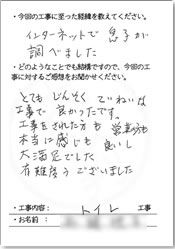 ・今回の工事に至った経緯を教えてください。
インターネットで 息子が
調べました
・どのようなことでも結構ですので、今回の工
事に対するご感想をお聞かせください。
とても じんそく ていねいな
工事で 良かったです。
工事をされた方も 営業の方も
本当に感じも 良いし
大満足でした
有難度うございました
・工事内容: トイレ 工事
・お名前: